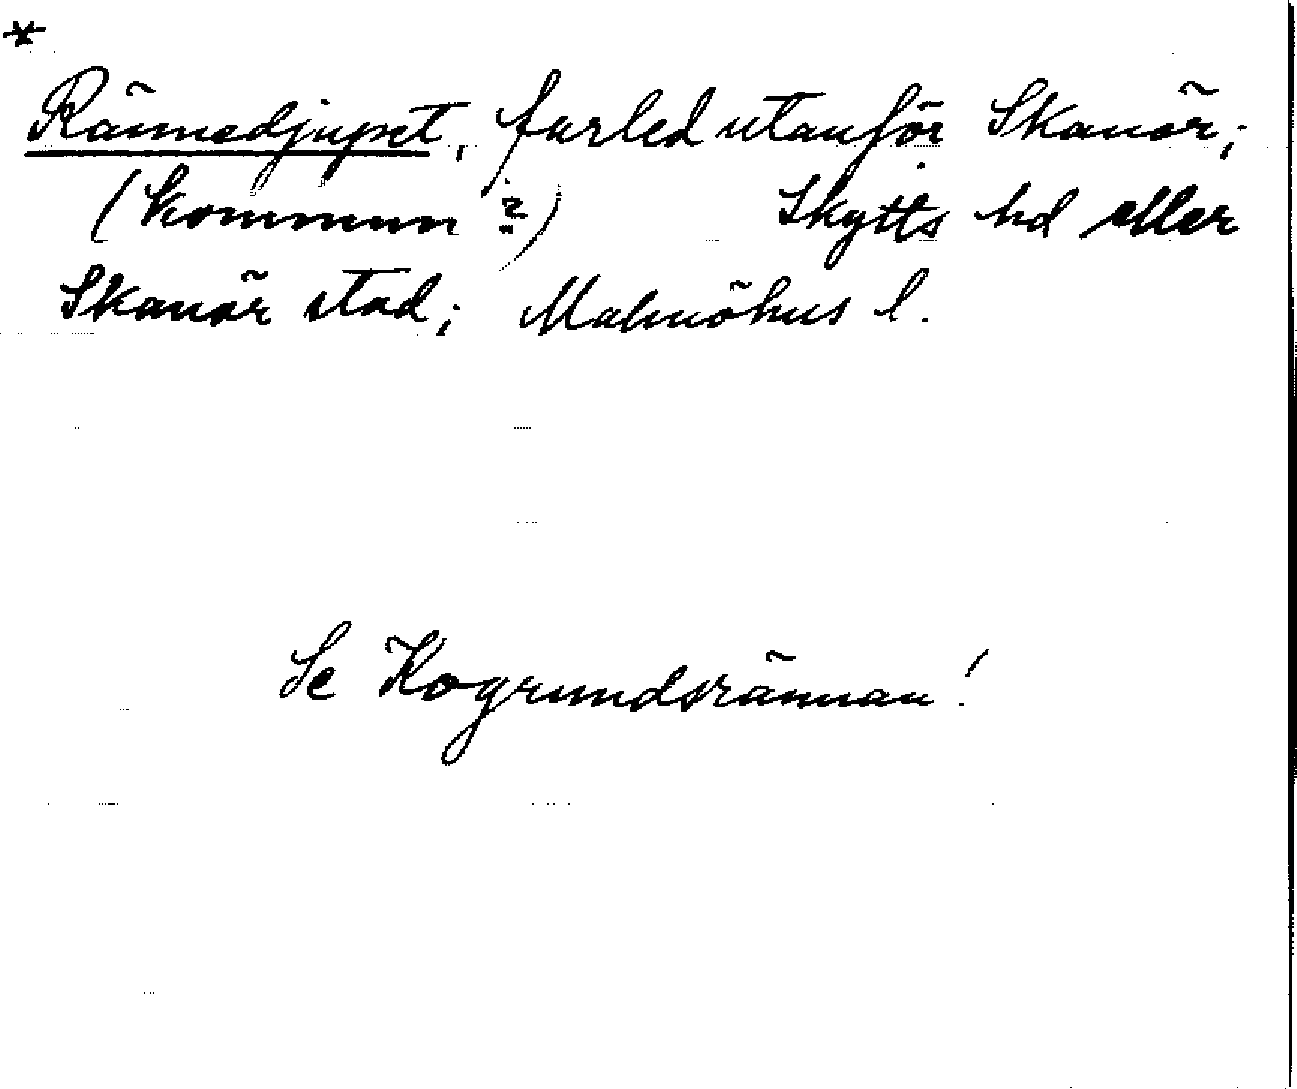 *
Rännedjupet, farled utanför Skanör;
(kommun ?) Skytts hd eller
Skanör stad; Malmöhus l.
Se Kogrundsrännan!